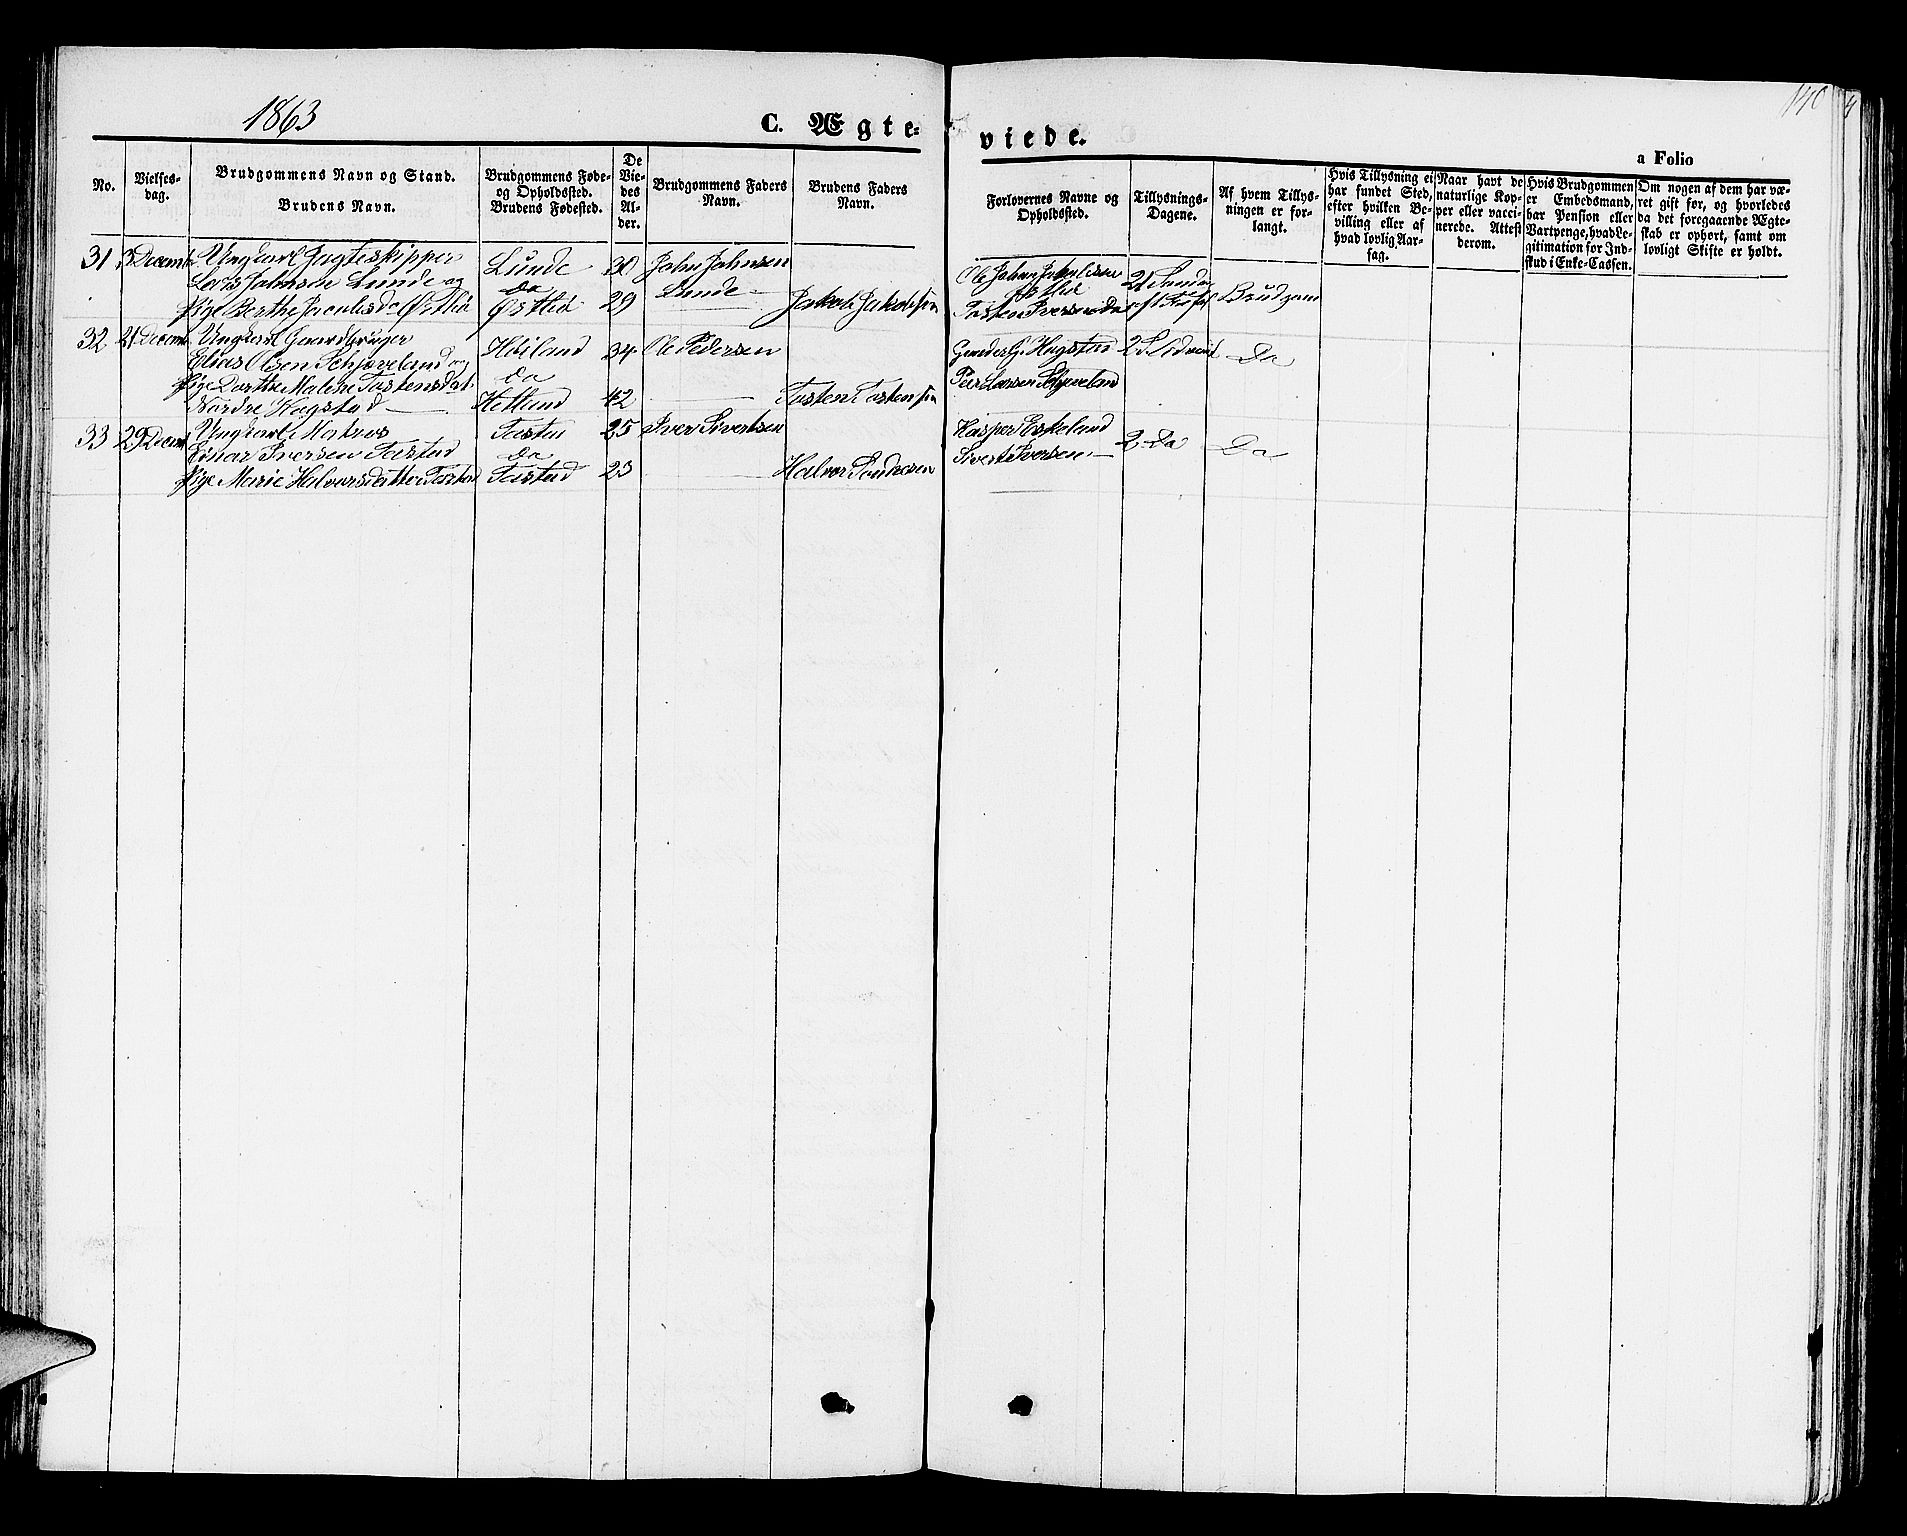 1863
C. Ægte-
viede.
140
a Folio
No.
Vielses-
dag.
Brudgommens Navn og Stand.
Brudens Navn.
Brudgommens Føde-
og Opholdssted.
Brudens Fødested.
De
Vie-
des
Al-
der.
Brudgommens Faders
Navn.
Brudens Faders
Navn.
Forlovernes Navne og
Opholdssted.
Tillysnings-
Dagene.
Af hvem Tillys-
ningen er for-
langt.
Hvis Tillysning ei
har fundet Sted,
efter hvilken Be-
villing eller af
hvad lovlig Aar-
sag.
Naar havt de
naturlige Kop-
per eller vacci-
nerede. Attest
derom.
Hvis Brudgommen
er Embedsmand,
har Pension eller
Vartpenge, hvad Le-
gitimation for Ind-
skud i Enke-Cassen.
Om nogen af dem har væ-
ret gift før, og hvorledes
da det foregaaende Ægte-
skab er ophørt, samt om
lovligt Skifte er holdt.
31
3 Decemb
Ungkarl Jagteskipper
Lars Johnsen Lunde og
Pige Berthe Jacobsd Østhus
Lunde
da
30
29
John Johnsen
Lunde
Jakob Jakobsen
Ole Johan Jakobsen
Tosten Iversen da
Brudgom
32
21 Decemb
Ungkarl Gaardbruger
Elias Olsen Schjæveland og
Pige Dorthe Malene Tostensdat.
Nordre Hogstad
Høiland
da
Hetland
34
42
Ole Pedersen
Tosten Tostensen
Gunder G. Hogstad
Peer Larsen Schjæveland
da
33
29 Decemb
Ungkarl Matros
Einar Iversen Tastad
Pige Marie Halvorsdatter Tastad
Tastad
da
Tastad
25
23
Iver Sivertsen
Halvor Tondresen
Kasper Eskeland
Sivert Iversen
2 da
da